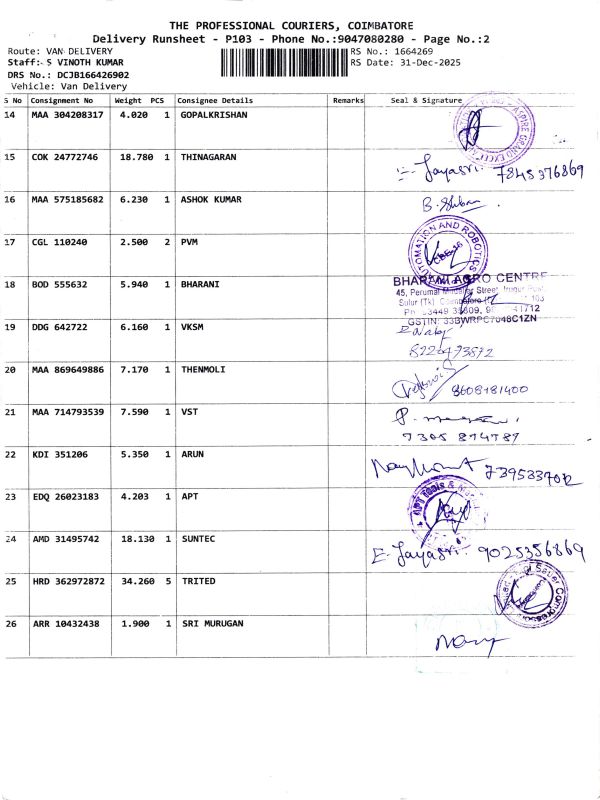 THE PROFESSIONAL COURIERS, COIMBATORE
Delivery Runsheet - P103 - Phone No.:9047080280 - Page No.:2
Route: VAN DELIVERY RS No.: 1664269
Staff: S VINOTH KUMAR RS Date: 31-Dec-2025
DRS No.: DCJB166426902
Vehicle: Van Delivery
S No Consignment No Weight PCS Consignee Details Remarks Seal & Signature
14 MAA 304208317 4.020 1 GOPALKRISHAN
15 COK 24772746 18.780 1 THINAGARAN
E. Jayasri. 7845376869
16 MAA 575185682 6.230 1 ASHOK KUMAR
17 CGL 110240 2.500 2 PVM
AUTOMATION AND ROBOTICS
18 BOD 555632 5.940 1 BHARANI
BHARANI AGRO CENTRE
45, Perumal Street,
Sulur (Tk) 103
GSTIN: 33BWRPC7048C1ZN
19 DDG 642722 6.160 1 VKSM
20 MAA 869649886 7.170 1 THENMOLI
8608181400
21 MAA 714793539 7.590 1 VST
22 KDI 351206 5.350 1 ARUN
23 EDQ 26023183 4.203 1 APT
APT Tools &
24 AMD 31495742 18.130 1 SUNTEC
E. Jayasri. 9025356869
25 HRD 362972872 34.260 5 TRITED
26 ARR 10432438 1.900 1 SRI MURUGAN